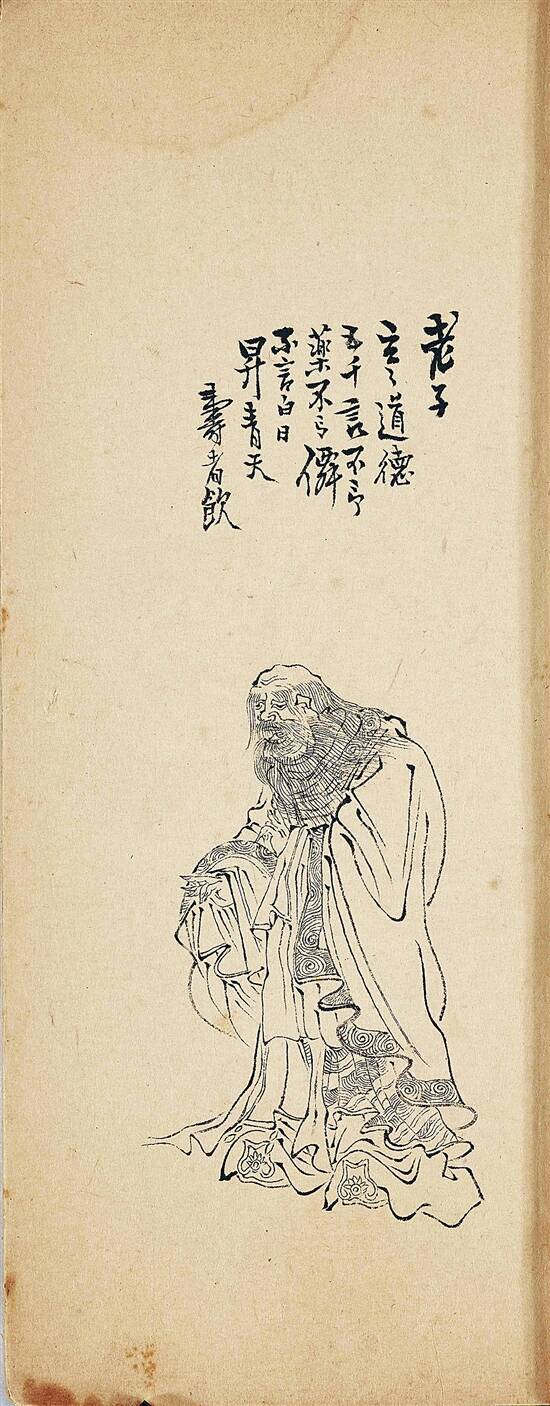 老子
玄々道德
五千言不言
藥不言僊
不言白日
昇青天
壽者飲